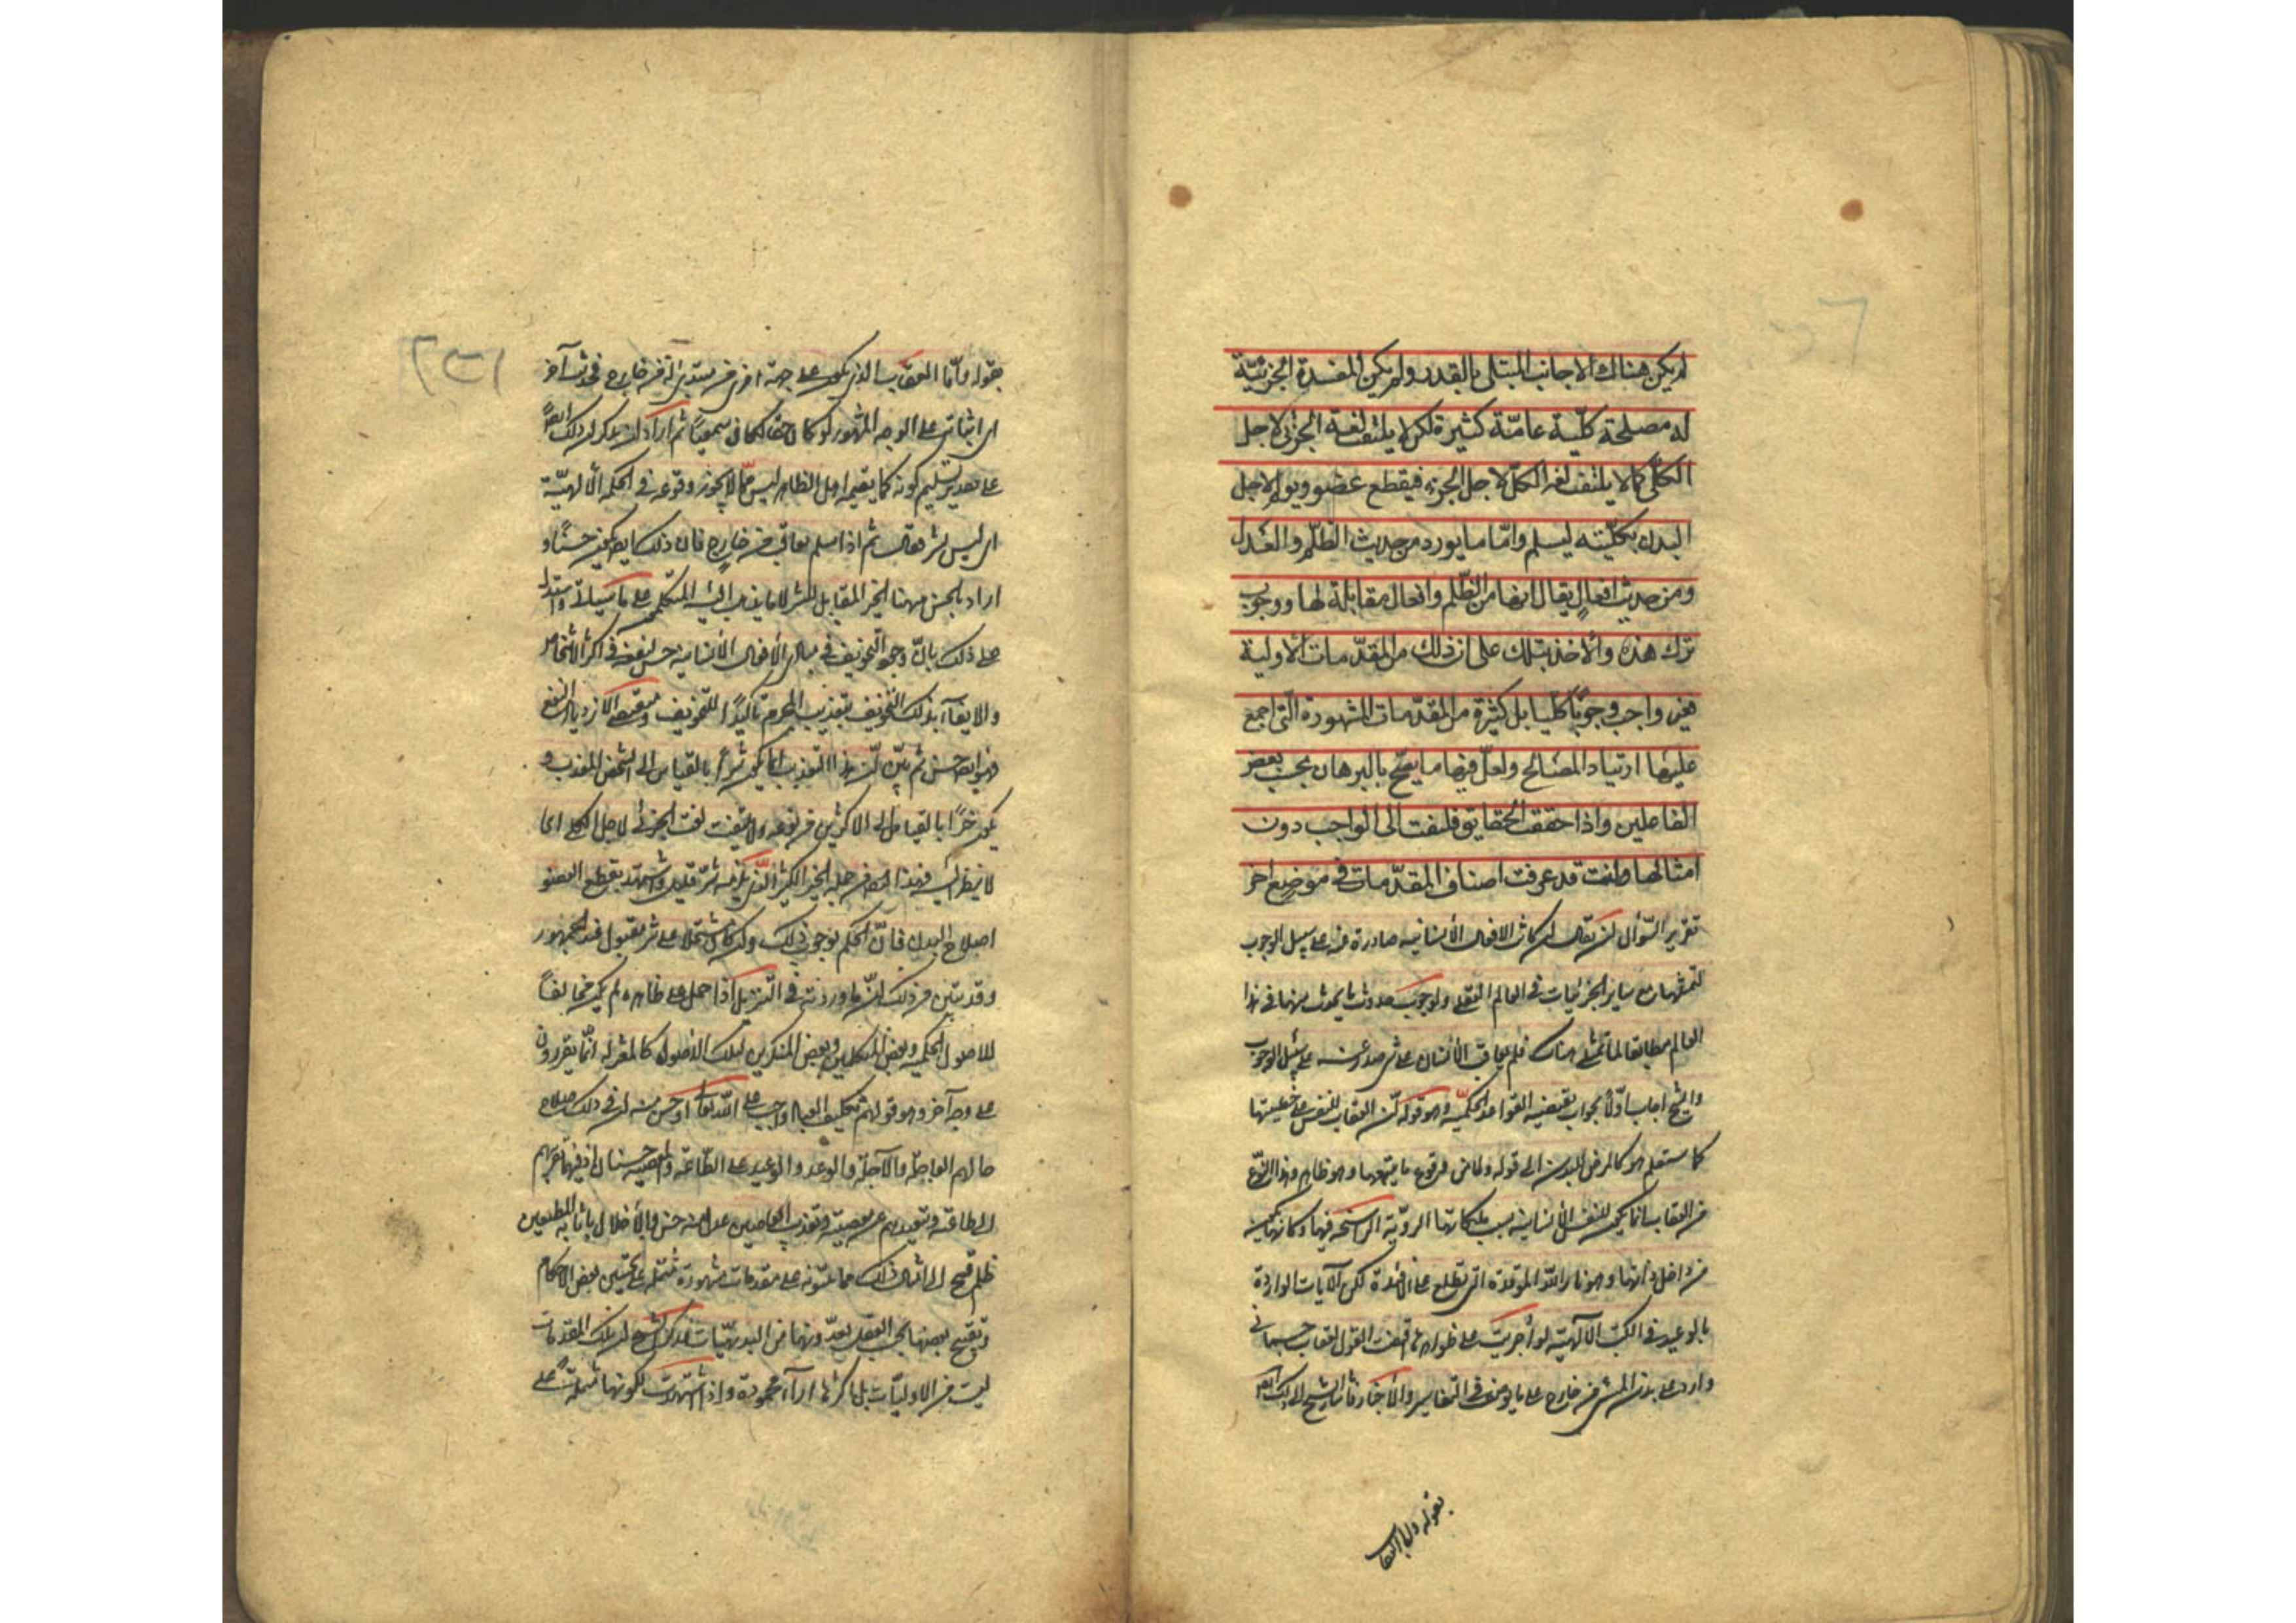 لم يكن هناك الا جانب المبتلى بالقدر ولم يكن المفسدة الجزئية
له مصلحة كلية عامة كثيرة لكن لا يلتفت لفت الجزئى لاجل
الكلى كما لا يلتفت لفت الكل لاجل الجزء فيقطع عضو ويولم لاجل
البدن بكليته ليسلم وامّا ما يورد من حديث الظلم والعدل
ومن حديث افعال يقال انها من الظلم وافعال مقابلة لها ووجوب
ترك هذه والأخذ بتلك على ان ذلك من المقدّمات الأولية
فغير واجب وجوبًا كليا بل كثيرة من المقدّمات المشهورة التى اجمع
عليها ارتياد المصالح ولعلّ فيها ما يصح بالبرهان بحسب بعض
الفاعلين واذا حققت الحقايق فليلتفت الى الواجب دون
امثالها وانت قد عرفت اصناف المقدّمات فى موضع اخر
تقرير السّؤال ان يقال ان كانت الافعال الأنسانيه صادرة عنه على سبيل الوجوب
لتمثلها مع ساير الجزئيات فى العالم العقلى ولوجوب حدوث ما يحدث منها فى هذا
العالم مطابقا لما تمثل هناك فلم يعاقب الأنسان على شى صدر عنه على سبيل الوجوب
والشيخ اجاب اوّلاً بجواب يقتضيه القواعد الحكميّه وهو قوله انّ العقاب للنفس على خطيئتها
كما ستعلم هو كالمرض للبدن الى قوله ولا من وقوع ما يتبعها وهو ظاهر وهذا النوع
من العقاب انما يكون للنفس الأنسانية بسبب ملكاتها الرديّة الراسخة فيها وكانها تكون
من داخل ذاتها وهو نار الله الموقدة التى تطلع على الافئدة لكن الآيات الواردة
بالوعيد فى الكتب الالهيّة لو أجريت على ظواهرها اقتضت القول بعقاب جسمانى
وارد على بدن المسئ من خارج على ما يوصف فى التفاسير والأخبار فاشار الشيخ الى ذلك ايضا
بقوله واما العقاب
بقوله وامّا العقاب الذى يكون على جهة اخرى من مبتدئ له من خارج فحديث آخر
اى اثباته على الوجه المشهور لو كان حقا لكان سمعيا ثم اراد ان يذكر ان ذلك ايضاً
على تقدير تسليم كونه كما يقتضيه اهل الظاهر ليس ممّا لا يجوز وقوعه فى الحكمة الألهيّة
اى ليس بشر فقال ثم اذا سلم معاقب من خارج فان ذلك ايضا يكون حسنًا و
اراد بالحسن ههنا الخير المقابل للشر لا ما يذهب اليه المتكلم على ما سيأتى واستدل
على ذلك بانّ وجود التخويف فى مبادى الافعال الأنسانية حسن لنفعه فى اكثر الأشخاص
والايفاء بذلك التخويف بتعذيب المجرم تأكيدٌ للتخويف ومقتض لازدياد النفع
فهو ايضا حسن ثم بيّن انّ هذا التعذيب انما يكون شرًّا بالقياس الى الشخص المعذب و
يكون خيرًا بالقياس الى الاكثرين من نوعه ولا يلتفت لفت الجزئى لاجل الكلى اى
لا ينظر اليه فهذا ايضا من جملة الخير الكثير الّذى يلزمه شرّ قليل واستشهد بقطع العضو
اصلاح البدن فانّ الحكم بوجوب ذلك وان كان مشتملا على شر مقبول عند الجمهور
وقد تبيّن من ذلك انّ ما ورد به فى التنزيل اذا حمل على ظاهره لم يكن مخالفاً
للاصول الحكميه وبعض المتكلمين وبعض المنكرين لتلك الاصول كالمعتزلة انّما يقررون
على وجه آخر وهو قولهم تكليف العباد واجب على الله تعالى او حسن منه لان فى ذلك صلاح
حالهم العاجلة والآجلة والوعد والوعيد على الطّاعة والمعصية حسنان اذ فيهما تقريبهم
الى طاعته وتبعيدهم عن معصيته وتعذيب العاصين عدل منه حسن والأخلال باثابة المطيعين
ظلم قبيح الى امثال ذلك مما يبنونه على مقدمات مشهورة مشتملة على تحسين بعض الاحكام
وتقبيح بعضها بحسب العقل يعدّونها من البديهيّات فذكر الشيخ ان تلك المقدمات
ليست من الاوليّات بل اكثرها اراء محمودة وانما اشتهرت لكونها مشتملة على